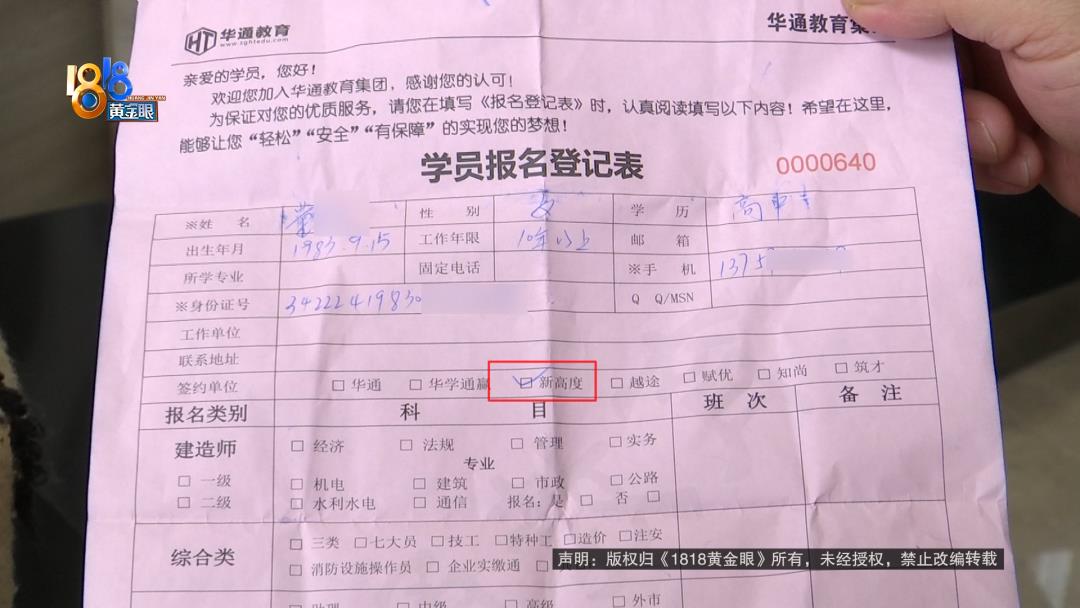 HT 华通教育
www.zghtedu.com
华通教育集
1818
黄金眼
HUANG JIN YAN
亲爱的学员，您好！
欢迎您加入华通教育集团，感谢您的认可！
为保证对您的优质服务，请您在填写《报名登记表》时，认真阅读填写以下内容！希望在这里，
能够让您“轻松”“安全”“有保障”的实现您的梦想！
学员报名登记表
0000640
※姓 名 董 性 别 女 学 历 高中
出生年月 1983.9.15 工作年限 10年以上 邮 箱
所学专业 固定电话 ※手 机 1375
※身份证号 34222419830 Q Q/MSN
工作单位
联系地址
签约单位 □ 华通 □ 华学通赢 □ 新高度 □ 越途 □ 赋优 □ 知尚 □ 筑才
报名类别 科 目 班 次 备 注
建造师 □ 经济 □ 法规 □ 管理 □ 实务
专业
□ 一级 □ 机电 □ 建筑 □ 市政 □ 公路
□ 二级 □ 水利水电 □ 通信 报名：是 □ 否 □
综合类 □ 三类 □ 七大员 □ 技工 □ 特种工 □ 造价 □ 注安
□ 消防设施操作员 □ 企业实缴通 □
□ 助理 □ 中级 □ 高级 □ 外市
声明：版权归《1818黄金眼》所有，未经授权，禁止改编转载